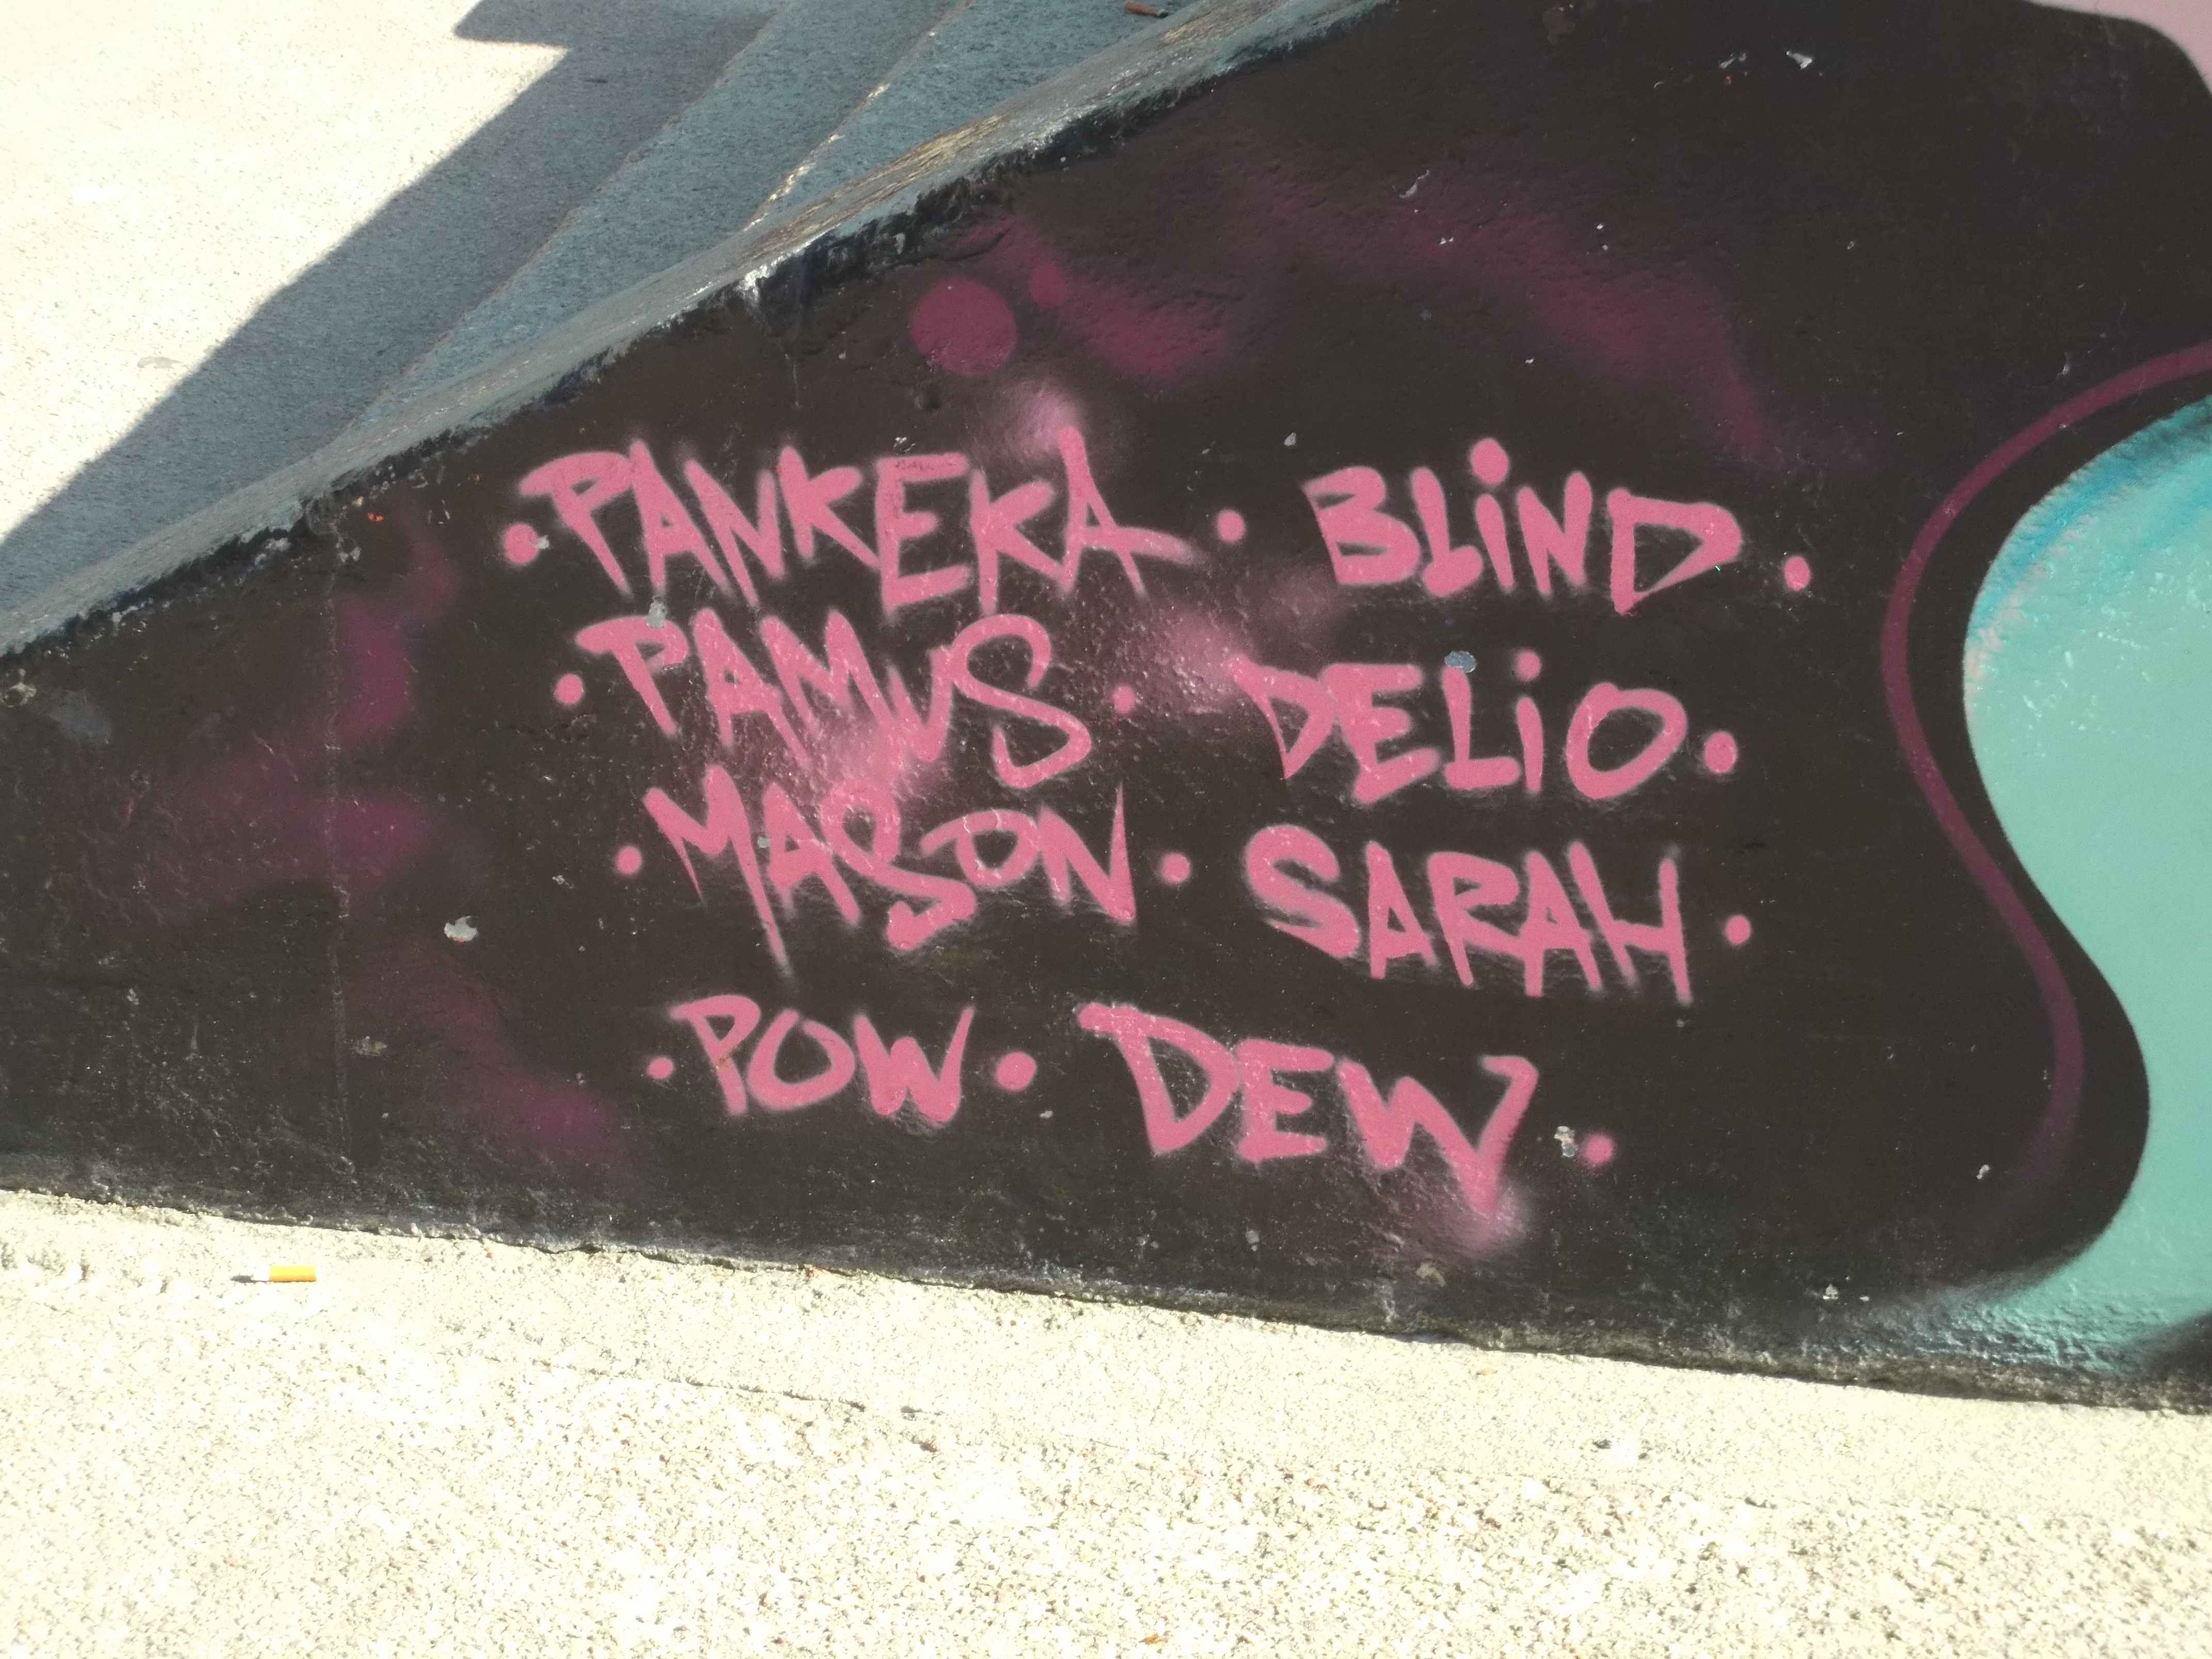 • PANKEKA • BLiND •
• PAMVS • DELiO •
• MASON • SARAH •
• POW • DEW •